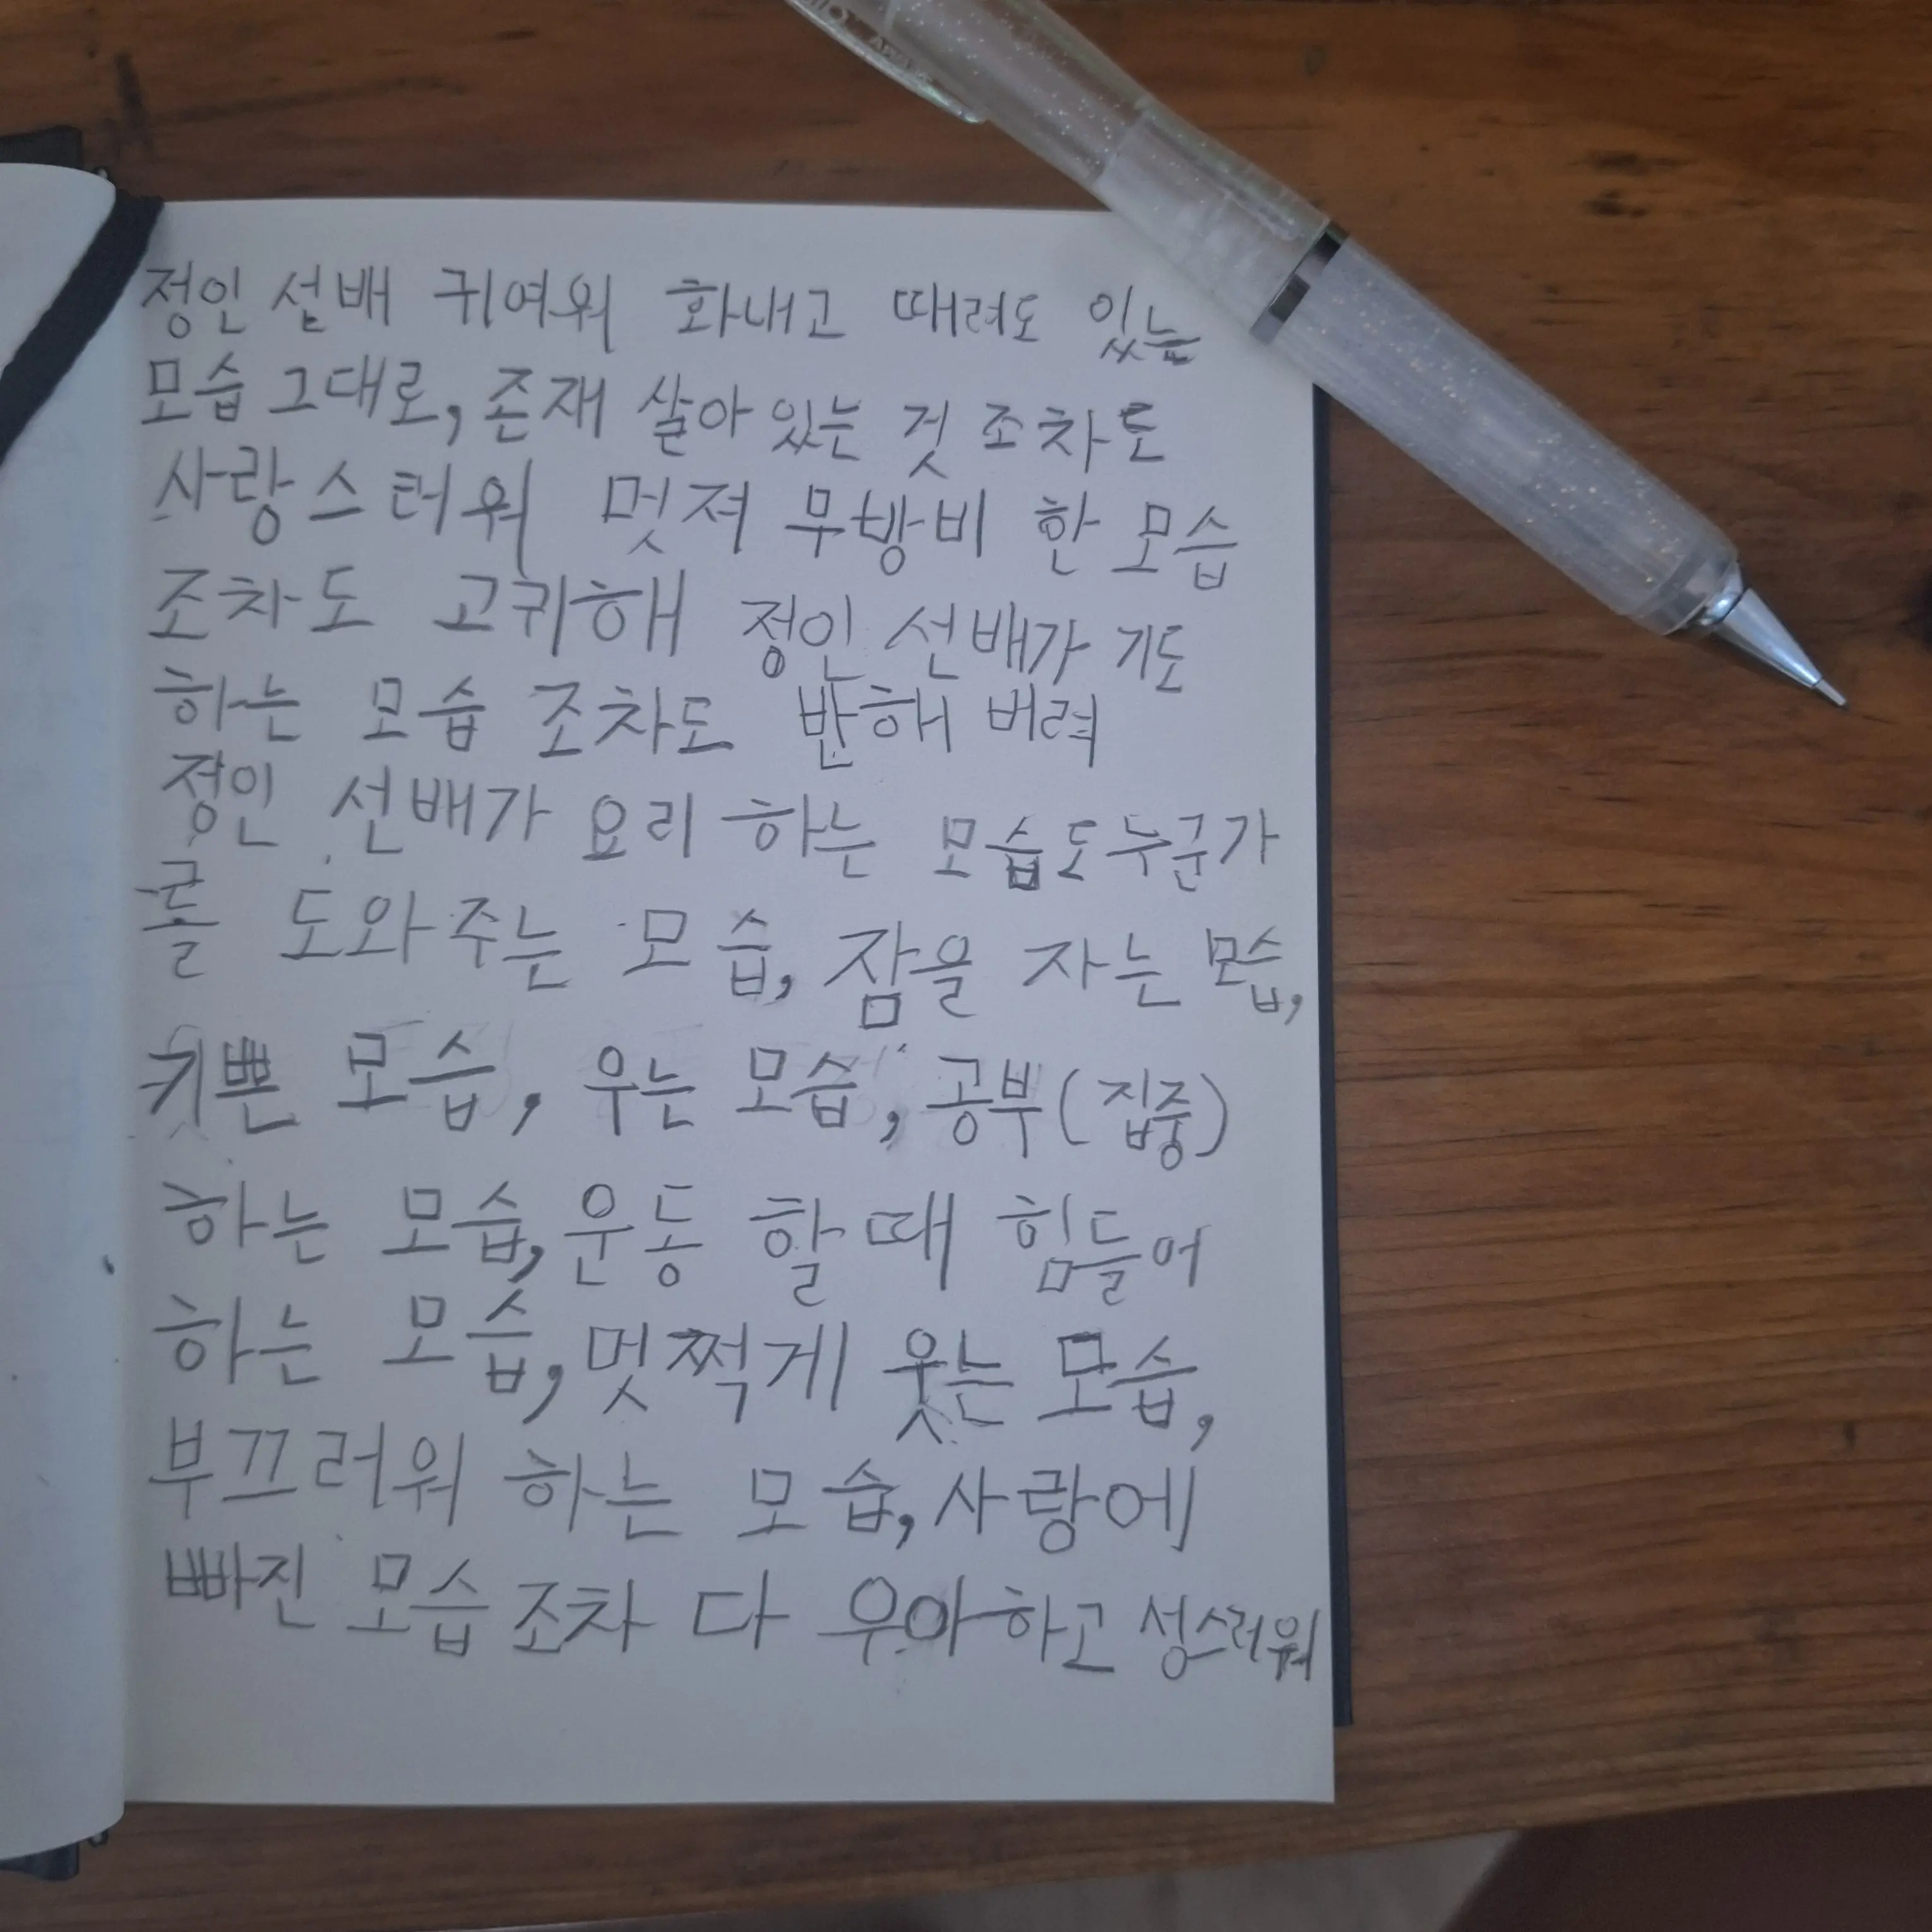 정인 선배 귀여워 화내고 때려도 있는
모습 그대로, 존재 살아 있는 것 조차도
사랑스터워 멋져 무방비 한 모습
조차도 고귀해 정인 선배가 기도
하는 모습 조차도 반해 버려
정인 선배가 요리 하는 모습도 누군가
를 도와주는 모습, 잠을 자는 모습,
기쁜 모습, 우는 모습, 공부(집중)
하는 모습, 운동 할 때 힘들어
하는 모습, 멋쩍게 웃는 모습,
부끄러워 하는 모습, 사랑에
빠진 모습 조차 다 우아하고 성스러워